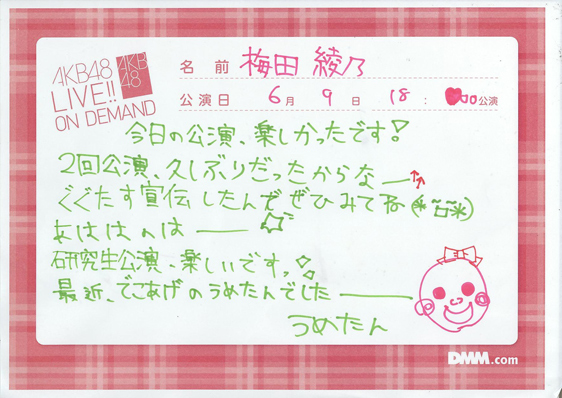 AKB48
LIVE!!
ON DEMAND
AKB
48
名前 梅田 綾乃
公演日 6月 9日 18:00公演
今日の公演、楽しかったです!
2回公演、久しぶりだったからなー↑↑
ぐぐたす宣伝したんでぜひみてね
あははのはー
研究生公演、楽しいですっ
最近、でこあげのうめたんでしたー
うめたん
DMM.com